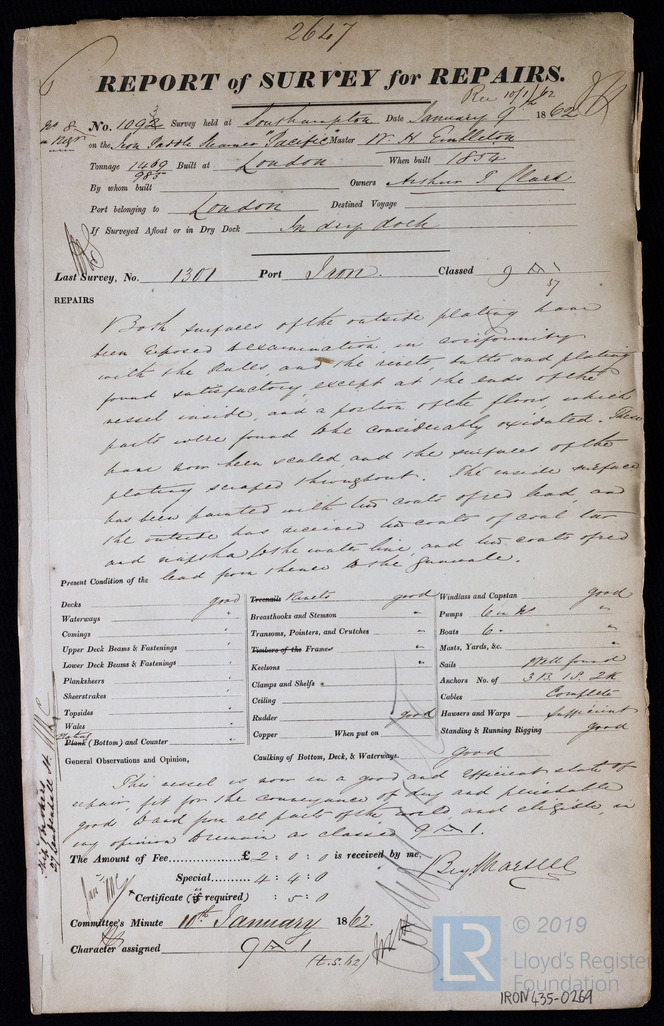 2647
REPORT of SURVEY for REPAIRS.
Rec 10/1/62
No. 1093 Survey held at Southampton Date January 9th 1862
on the Iron Paddle Steamer "Pacific" Master W. H. Embleton
Tonnage 1469 Built at London When built 1854
985
By whom built Owners Arthur T. Clark
Port belonging to London Destined Voyage
If Surveyed Afloat or in Dry Dock In dry dock
Last Survey, No. 1301 Port Iron. Classed 9 A 1
57
REPAIRS
Both surfaces of the outside plating have
been exposed to examination, in conformity
with the Rules, and the rivets, butts and plating
found satisfactory, except at the ends of the
vessel inside, and a portion of the floors, which
parts were found to be considerably oxidated. These
have now been scaled, and the surfaces of the
plating scraped throughout. The inside surface
has been painted with two coats of red lead, and
the outside has received two coats of coal tar
and napsha to the water line, and two coats of red
lead from thence to the Gunwale.
Present Condition of the
Decks good Treenails Rivets good Windlass and Capstan good
Waterways " Breasthooks and Stemson " Pumps 6 in No "
Comings " Transoms, Pointers, and Crutches " Boats 6. "
Upper Deck Beams & Fastenings " Timbers of the Frames " Masts, Yards, &c. "
Lower Deck Beams & Fastenings " Keelsons " Sails Well found
Planksheers " Clamps and Shelfs " Anchors No. of 3 B. 1 S. 2 K
Sheerstrakes " Ceiling " Cables Complete
Topsides " Rudder good Hawsers and Warps Sufficient
Wales " Copper When put on Standing & Running Rigging good
Plank (Bottom) and Counter " Caulking of Bottom, Deck, & Waterways. Good
General Observations and Opinion,
This vessel is now in a good and efficient state of
repair, fit for the conveyance of dry and perishable
goods to and from all parts of the world, and eligible, in
my opinion to remain as classed 9 A 1.
The Amount of Fee £ 2 : 0 : 0 is received by me,
Special 4 : 4 : 0
Certificate (if required) : 5 : 0
Committee's Minute 10th January 1862.
Character assigned 9 A 1
© 2019
LR
Lloyd's Register
Foundation
IRON435-0269